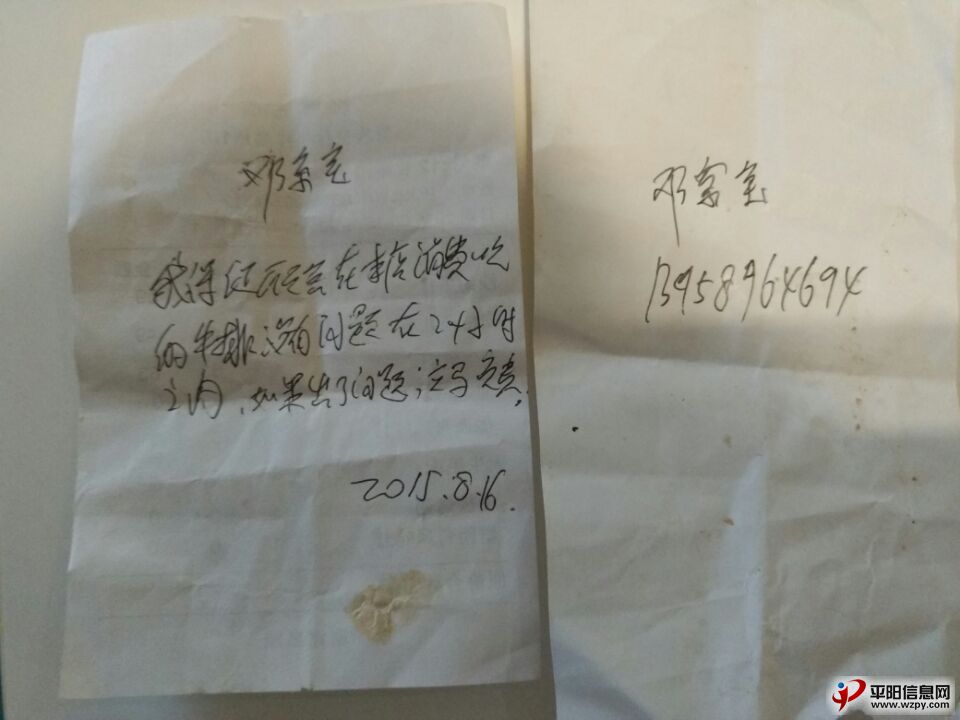 邓家宝
我保证所定客在本店消费吃
的牛排没有问题在24小时
之内,如果出了问题,立马负责.
2015.8.16.
邓家宝
13958964694
平阳信息网
www.wzpy.com